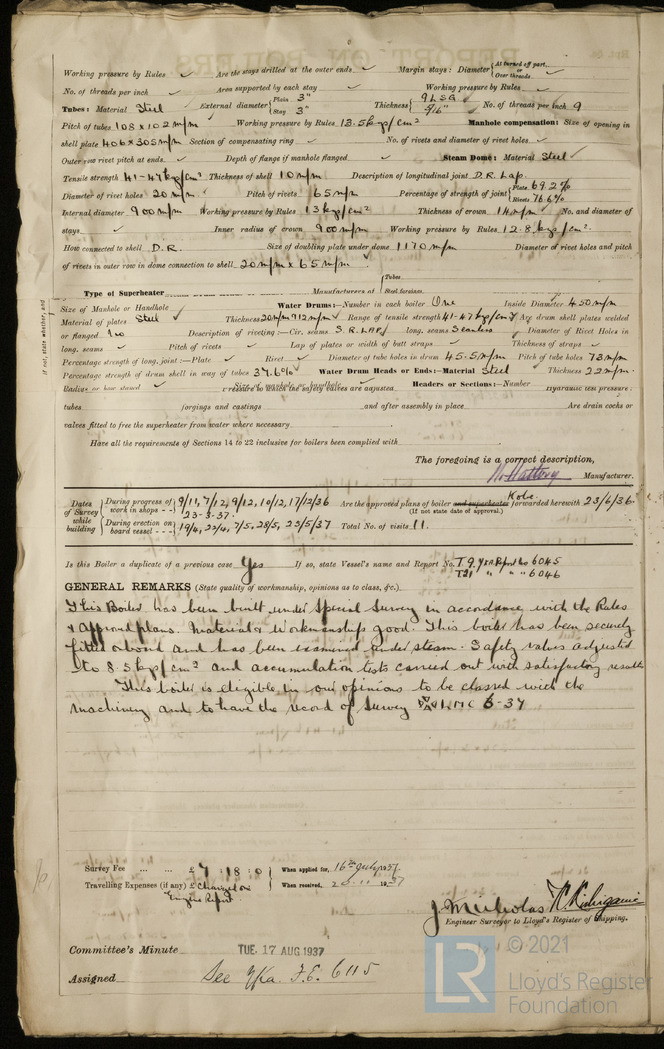 Working pressure by Rules ✓ Are the stays drilled at the outer ends ✓ Margin stays: Diameter { At turned off part, or Over threads ✓
No. of threads per inch ✓ Area supported by each stay ✓ Working pressure by Rules ✓
Tubes: Material Steel External diameter { Plain 3" Stay 3" Thickness { 9 LSG 5/16" No. of threads per inch 9
Pitch of tubes 108 x 102 m/m Working pressure by Rules 13.5 kgs/cm² Manhole compensation: Size of opening in
shell plate 406 x 305 m/m Section of compensating ring ✓ No. of rivets and diameter of rivet holes ✓
Outer row rivet pitch at ends ✓ Depth of flange if manhole flanged ✓ Steam Dome: Material Steel ✓
Tensile strength 41-47 kg/cm² Thickness of shell 10 m/m Description of longitudinal joint D.R. Lap.
Diameter of rivet holes 20 m/m Pitch of rivets 65 m/m Percentage of strength of joint { Plate 69.2% Rivets 76.6%
Internal diameter 900 m/m Working pressure by Rules 13 kgs/cm² Thickness of crown 14 m/m No. and diameter of
stays ✓ Inner radius of crown 900 m/m Working pressure by Rules 12.8 kgs/cm².
How connected to shell D.R. Size of doubling plate under dome 1170 m/m Diameter of rivet holes and pitch
of rivets in outer row in dome connection to shell 20 m/m x 65 m/m
Type of Superheater Manufacturers of { Tubes Steel forgings
Size of Manhole or Handhole Water Drums:—Number in each boiler One Inside Diameter 450 m/m
Material of plates Steel ✓ Thickness 20 m/m & 12 m/m ✓ Range of tensile strength 41-47 kg/cm² Are drum shell plates welded
or flanged No Description of riveting:—Cir. seams S.R. LAP long. seams Seamless Diameter of Rivet Holes in
long. seams ✓ Pitch of rivets ✓ Lap of plates or width of butt straps ✓ Thickness of straps ✓
Percentage strength of long. joint:—Plate ✓ Rivet ✓ Diameter of tube holes in drum 45.5 m/m Pitch of tube holes 73 m/m
Percentage strength of drum shell in way of tubes 37.6% ✓ Water Drum Heads or Ends:—Material Steel Thickness 22 m/m
Radius or how stayed ✓ Size of manhole or handhole ✓ Headers or Sections:—Number Hydraulic test pressure:
tubes forgings and castings and after assembly in place Are drain cocks or
valves fitted to free the superheater from water where necessary
Have all the requirements of Sections 14 to 22 inclusive for boilers been complied with
The foregoing is a correct description,
Manufacturer.
Dates of Survey while building { During progress of work in shops - - } 9/11, 7/12, 9/12, 10/12, 17/12/36 23-3-37. Are the approved plans of boiler and superheater forwarded herewith Kobe 23/6/36.
(If not state date of approval.)
{ During erection on board vessel - - } 19/4, 22/4, 7/5, 28/5, 23/5/37 Total No. of visits 11.
Is this Boiler a duplicate of a previous case Yes If so, state Vessel's name and Report No. T.9. YKA Report No 6045
T21 " " " 6046
GENERAL REMARKS (State quality of workmanship, opinions as to class, &c.)
This Boiler has been built under Special Survey in accordance with the Rules
& Approved plans. Material & Workmanship good. This boiler has been securely
fitted onboard and has been examined under steam. Safety valves adjusted
to 8.5 kgs/cm² and accumulation tests carried out with satisfactory results
This boiler is eligible in our opinions to be classed with the
machinery and to have the record of Survey LMC 6-37
Survey Fee ... ... £ 7 : 18 : 0 When applied for, 16th July 1937.
Travelling Expenses (if any) £ Charged on Engine Report. When received, 20-11 1937
J. M. Nicholas
Engineer Surveyor to Lloyd's Register of Shipping.
Committee's Minute TUE. 17 AUG 1937
Assigned See Yka. F.E. 6115
If not, state whether, and
© 2021
LR Lloyd's Register
Foundation